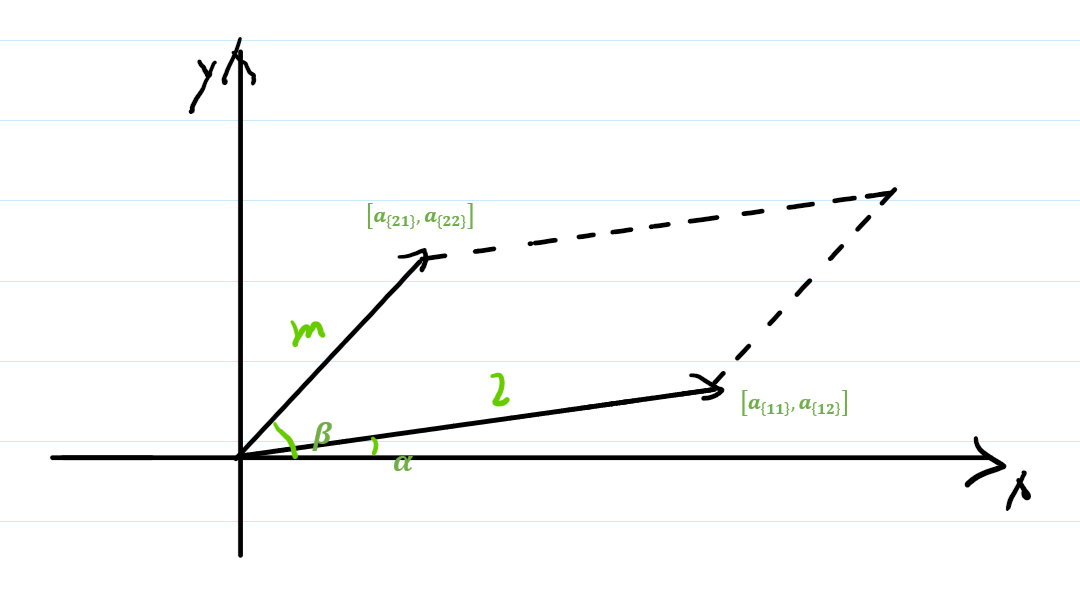 y
[a_{21}, a_{22}]
m
l
[a_{11}, a_{12}]
β
α
x